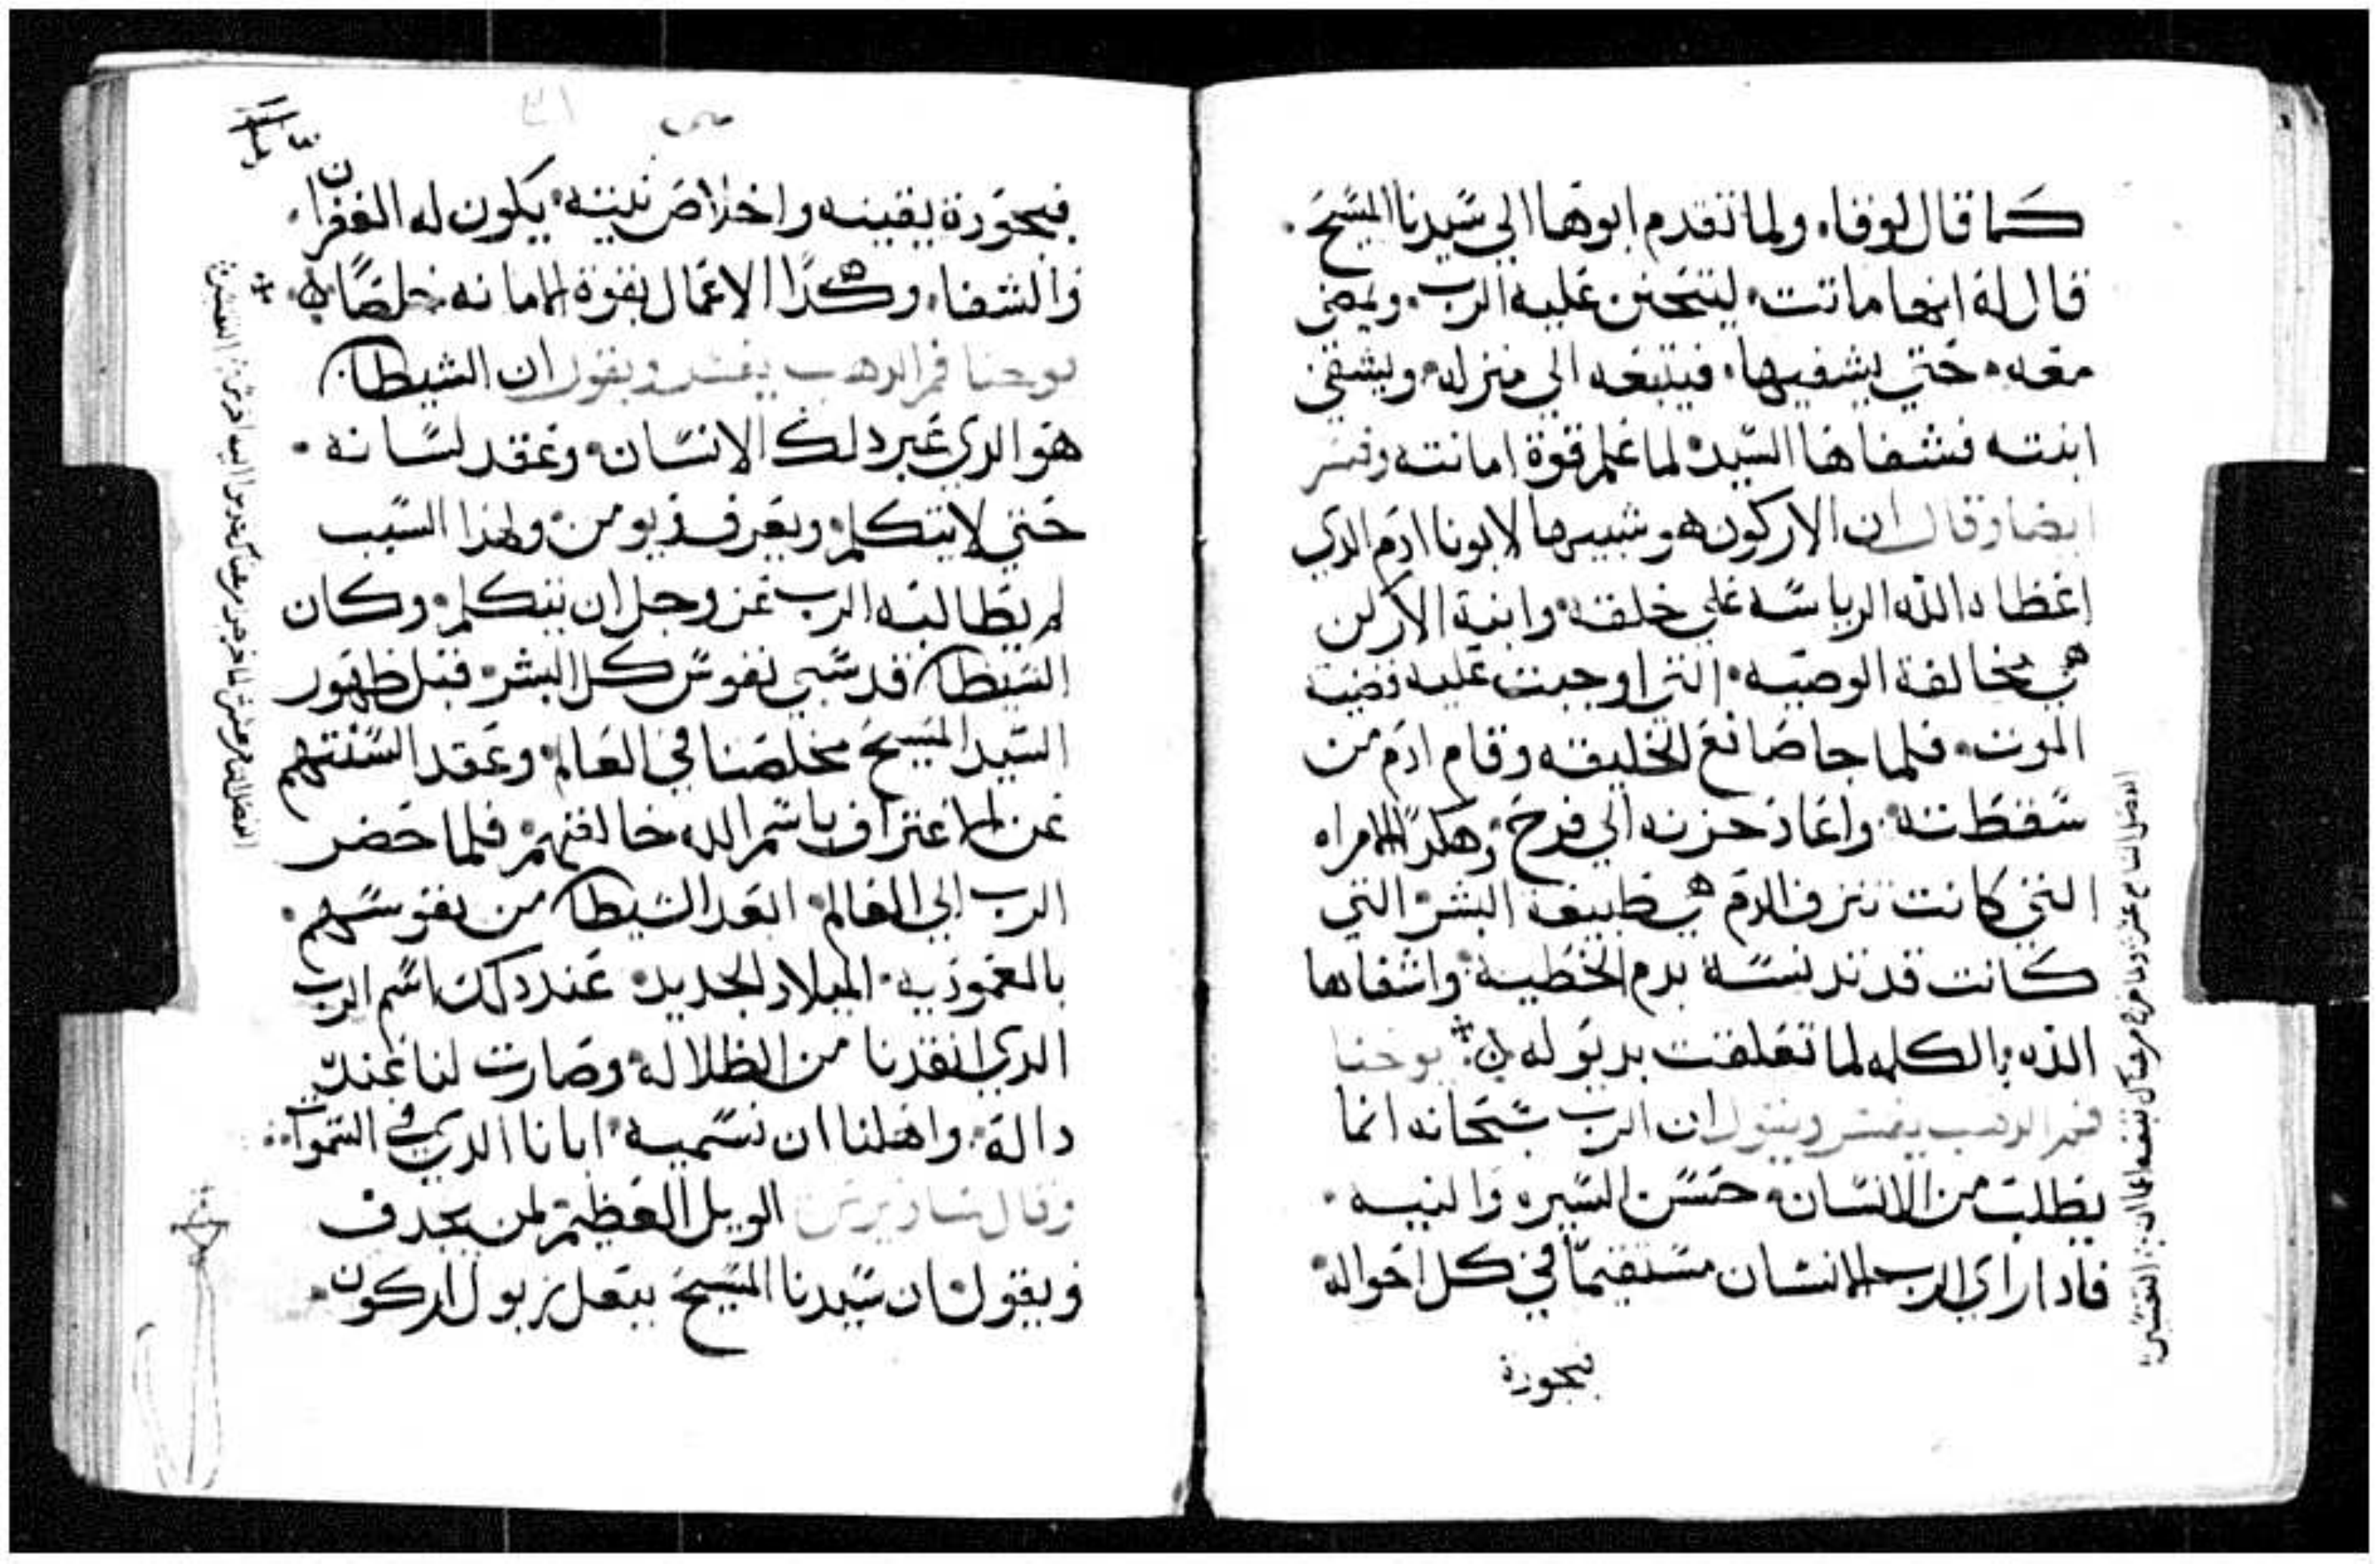 كما قال لوقا، ولما تقدم ابوها الي سيدنا المسيح.
قال له انها ماتت، ليتحنن عليه الرب. ويمضي
معه. حتي يشفيها، فيتبعه الي منزله. ويشفي
ابنته فشفاها السيد. لما علم قوة امانته وفسر
ايضا وقال ان الاركون هو شبيها لابونا ادم الدي
اعطاه الله الرياسه علي خلقته. وابنة الاركن
هي مخالفة الوصيه. التي اوجبت عليه قضية
الموت. فلما جا صانع الخليقه وقام ادم من
سقطته. واعاد حزنه الي فرح. وهكدا الامراه
التي كانت تنزف الدم هي طبيعة البشر. التي
كانت قد تدنسة بدم الخطية. واشفاها
الله الكلمه لما تعلقت بديوله يوحنا
فم الدهب يفسر ويقول ان الرب سبحانه انما
يطلب من الانسان. حسن السيره والنيه.
فادا راي الرب الانسان مستقيما في كل احواله.
فبجودة
الفصل السابع عشر ولما خرج من هناك تبعه اعميان التفسير
متي
فبجودة يقينه واخلاص نيته. يكون له الغفران
والشفا، وهكدا الاعمال بقوة الامانه خلاصا
يوحنا فم الدهب يفسر ويقول ان الشيطان
هو الدي غير دلك الانسان. وعقد لسانه.
حتي لا يتكلم. ويعرف ويومن. ولهدا السبب
لم يطالبه الرب عز وجل ان يتكلم. وكان
الشيطان قد سبي نفوس كل البشر. قبل ظهور
السيد المسيح مخلصنا في العالم. وعقد السنتهم
عن الاعتراف باسم الله خالقهم. فلما حضر
الرب الي العالم. ابعد الشيطان من نفوسهم.
بالمعموديه. الميلاد الجديد. عند دلك اسم الرب
الدي انقدنا من الظلاله. وصارت لنا عنده
دالة. واهلنا ان نسميه. ابانا الدي في السموات
وقال ساويرس الويل العظيم. لمن يجدف
ويقول ان سيدنا المسيح بيعل زبول اركون